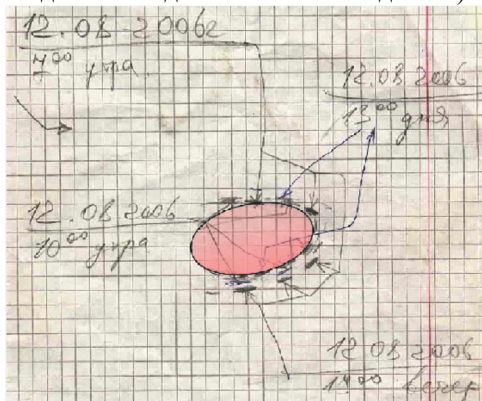 12.08 2006г
7⁰⁰ утра
12.08 2006
13⁰⁰ дня
12.08 2006
10⁰⁰ утра
12 08 2006
вечер